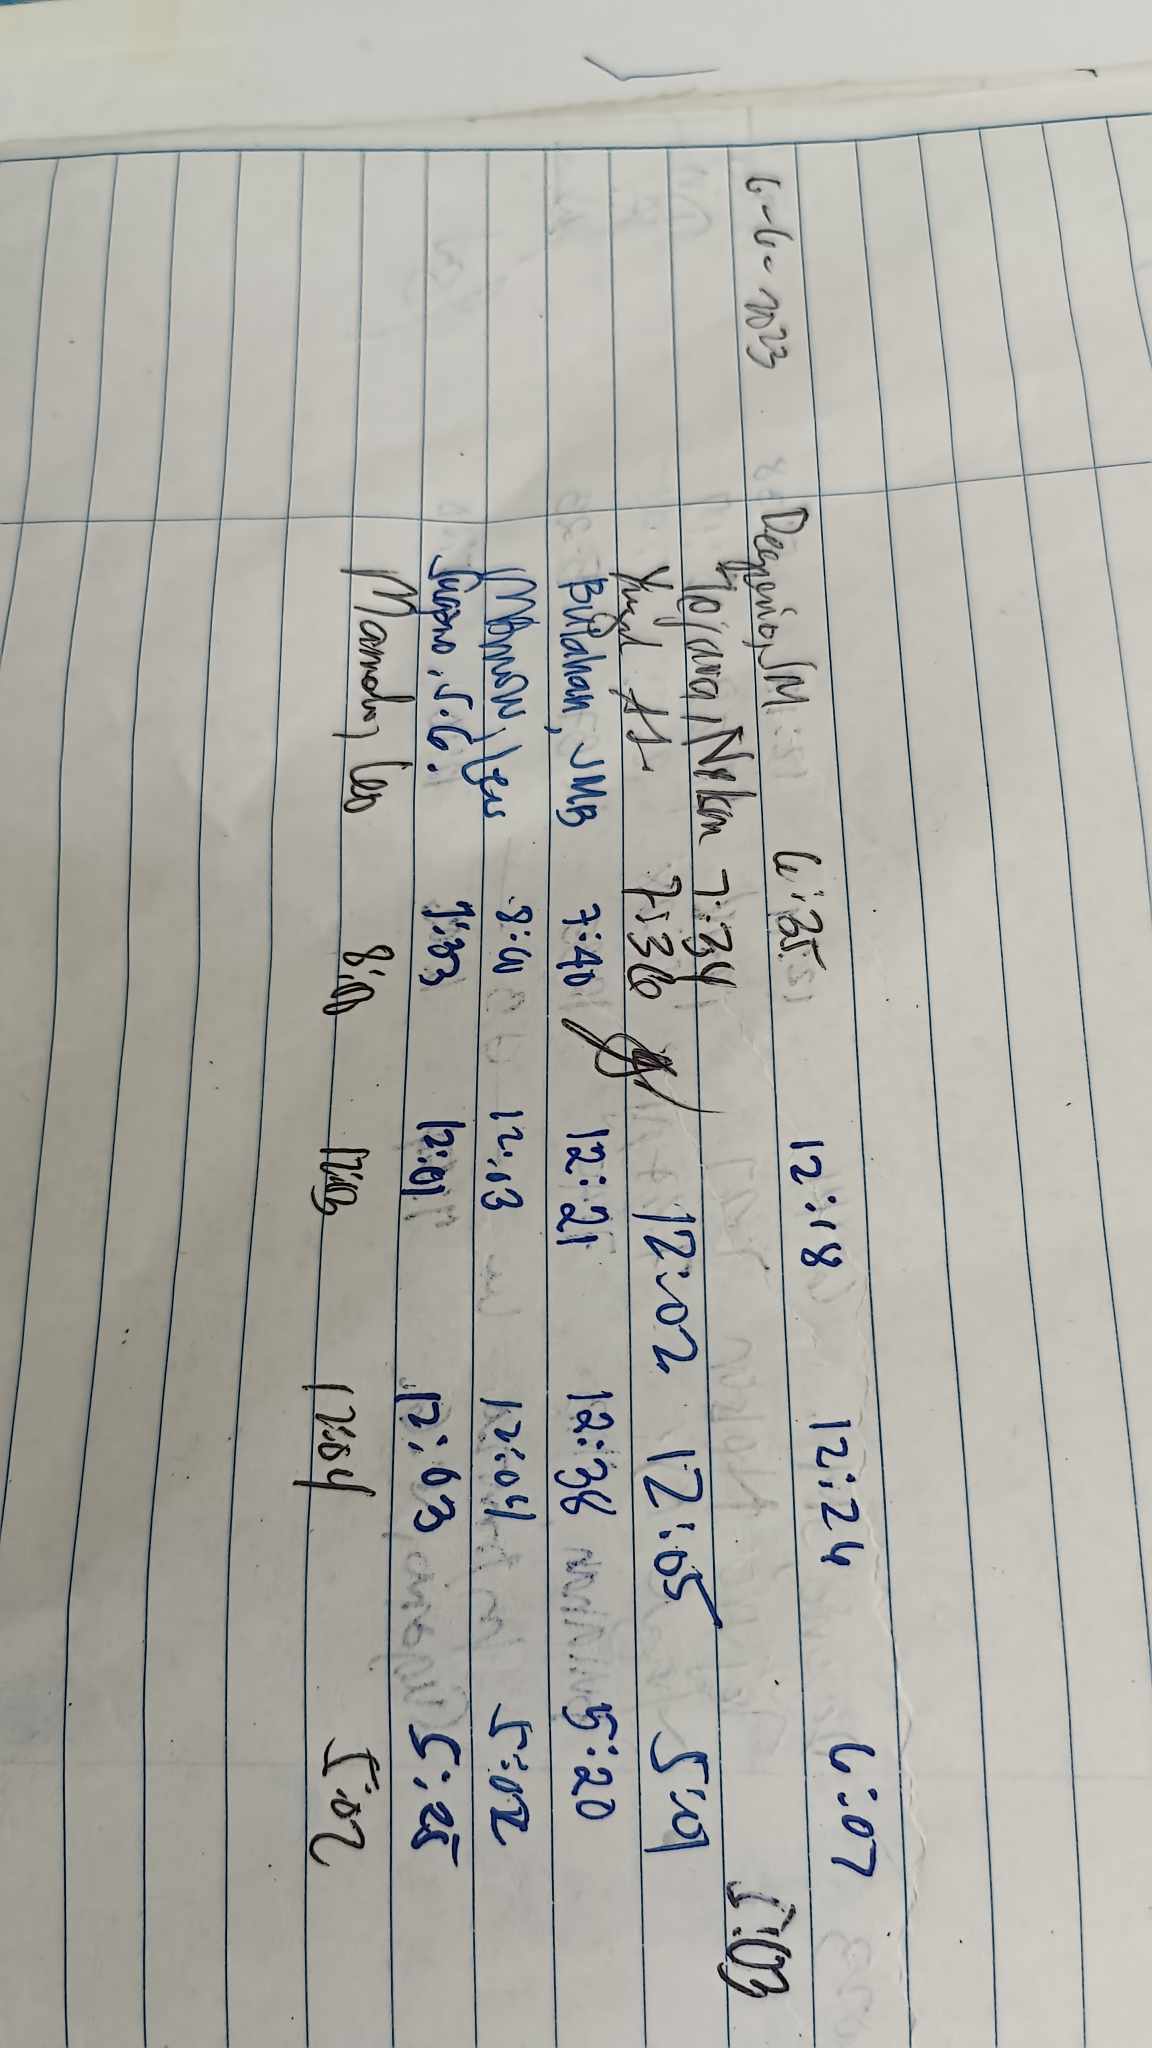 6-6-2023 Deejerio, JM 6:35 12:18 12:24 6:07
7:34 5:03
7:36 12:02 12:05 5:01
Bulahan, JMB 7:40 12:21 12:38 5:20
8:00 12:03 12:04 5:02
J.G. 7:53 12:01 12:03 5:25
Mamalo, Leo 8:00 12:03 12:04 5:02